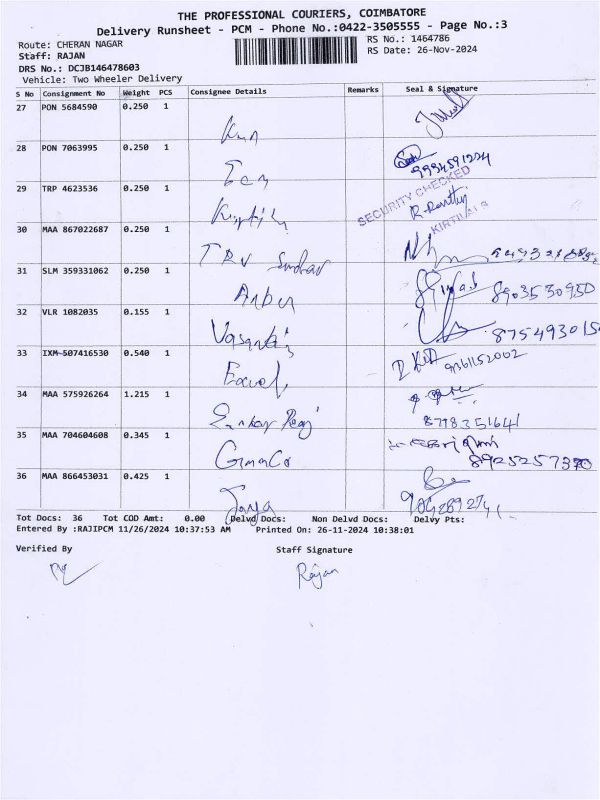 THE PROFESSIONAL COURIERS, COIMBATORE
Delivery Runsheet - PCM - Phone No.:0422-3505555 - Page No.:3
Route: CHERAN NAGAR RS No.: 1464786
Staff: RAJAN RS Date: 26-Nov-2024
DRS No.: DCJB146478603
Vehicle: Two Wheeler Delivery
S No Consignment No Weight PCS Consignee Details Remarks Seal & Signature
27 PON 5684590 0.250 1
28 PON 7063995 0.250 1
9994591224
SECURITY CHECKED
29 TRP 4623536 0.250 1
KIRTILALS
30 MAA 867022687 0.250 1
TRV
31 SLM 359331062 0.250 1
Anbu 8903530950
32 VLR 1082035 0.155 1
Vasanthi 875493015
33 IXM 507416530 0.540 1
Excel 9361152002
34 MAA 575926264 1.215 1
8778351641
35 MAA 704604608 0.345 1
8925257370
36 MAA 866453031 0.425 1
Jaya
Tot Docs: 36 Tot COD Amt: 0.00 Delvd Docs: Non Delvd Docs: Delvy Pts:
Entered By :RAJIPCM 11/26/2024 10:37:53 AM Printed On: 26-11-2024 10:38:01
Verified By Staff Signature
Rajan